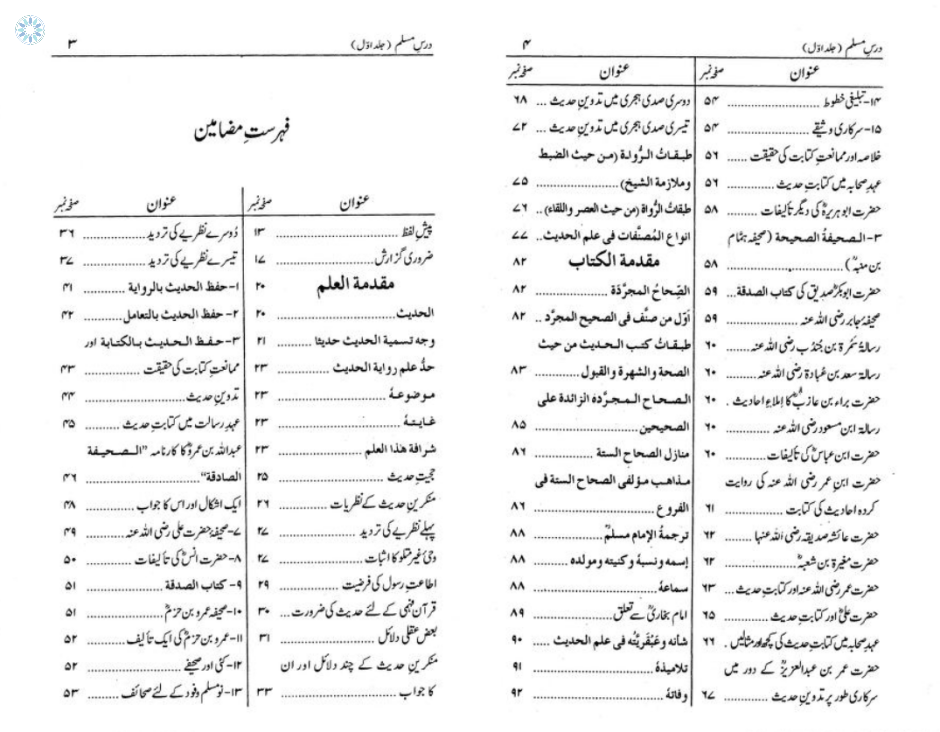 درسِ مسلم (جلد اوّل)
۳
فہرستِ مضامین
عنوان صفحہ نمبر
پیش لفظ ........ ۱۳
ضروری گزارش ........ ۱۷
مقدمة العلم ۲۰
الحدیث ........ ۲۰
وجه تسمیة الحدیث حدیثا ........ ۲۱
حدُّ علم روایة الحدیث ........ ۲۳
موضوعهٗ ........ ۲۳
غایتهٗ ........ ۲۳
شرافة هذا العلم ........ ۲۳
حجیتِ حدیث ........ ۲۵
منکرینِ حدیث کے نظریات ........ ۲۶
پہلے نظریے کی تردید ........ ۲۷
وحیِ غیر متلو کا اثبات ........ ۲۷
اطاعتِ رسول کی فرضیت ........ ۲۹
قرآن فہمی کے لئے حدیث کی ضرورت ... ۳۰
بعض عقلی دلائل ........ ۳۱
منکرینِ حدیث کے چند دلائل اور ان
کا جواب ........ ۳۳
عنوان صفحہ نمبر
دُوسرے نظریے کی تردید ........ ۳۶
تیسرے نظریے کی تردید ........ ۳۷
۱- حفظ الحدیث بالروایة ........ ۴۱
۲- حفظ الحدیث بالتعامل ........ ۴۲
۳- حفظ الحدیث بالکتابة اور
ممانعتِ کتابت کی حقیقت ........ ۴۳
تدوینِ حدیث ........ ۴۴
عہدِ رسالت میں کتابتِ حدیث ........ ۴۵
عبداللہ بن عمروؓ کا کارنامہ "الصحیفة
الصادقة" ........ ۴۶
ایک اشکال اور اس کا جواب ........ ۴۸
۷- صحیفۂ حضرت علی رضی اللہ عنہ ........ ۴۹
۸- حضرت انسؓ کی تألیفات ........ ۵۰
۹- کتاب الصدقة ........ ۵۱
۱۰- صحیفہ عمرو بن حزمؓ ........ ۵۱
۱۱- عمرو بن حزمؓ کی ایک تألیف ........ ۵۲
۱۲- کئی اور صحیفے ........ ۵۲
۱۳- نومسلم وفود کے لئے صحائف ........ ۵۳
درسِ مسلم (جلد اوّل)
۴
عنوان صفحہ نمبر
۱۴- تبلیغی خطوط ........ ۵۴
۱۵- سرکاری وثیقے ........ ۵۴
خلاصہ اور ممانعتِ کتابت کی حقیقت ...... ۵۶
عہدِ صحابہ میں کتابتِ حدیث ........ ۵۶
حضرت ابوہریرہؓ کی دیگر تألیفات ........ ۵۸
۳- الصحیفةُ الصحیحة (صحیفہ ہمّام
بن منبہؒ) ........ ۵۸
حضرت ابوبکرؓ صدیق کی کتاب الصدقة ... ۵۹
صحیفۂ جابر رضی اللہ عنہ ........ ۵۹
رسالۂ سَمُرة بن جُندُب رضی اللہ عنہ ........ ۶۰
رسالۂ سعد بن عُبادة رضی اللہ عنہ ........ ۶۰
حضرت براء بن عازبؓ کا اِملاءِ احادیث . ۶۰
رسالۂ ابن مسعود رضی اللہ عنہ ........ ۶۰
حضرت ابن عباسؓ کی تألیفات ........ ۶۰
حضرت ابنِ عمر رضی اللہ عنہ کی روایت
کردہ احادیث کی کتابت ........ ۶۱
حضرت عائشہ صدیقہ رضی اللہ عنہا ........ ۶۲
حضرت مغیرة بن شعبہؓ ........ ۶۲
حضرت عمر رضی اللہ عنہ اور کتابتِ حدیث ... ۶۳
حضرت علیؓ اور کتابتِ حدیث ........ ۶۵
عہدِ صحابہ میں کتابتِ حدیث کی کچھ اور مثالیں . ۶۶
حضرت عمر بن عبدالعزیزؒ کے دور میں
سرکاری طور پر تدوینِ حدیث ........ ۶۷
عنوان صفحہ نمبر
دوسری صدی ہجری میں تدوینِ حدیث ... ۶۸
تیسری صدی ہجری میں تدوینِ حدیث ... ۷۲
طبقاتُ الرُّواة (من حیث الضبط
وملازمة الشیخ) ........ ۷۵
طبقاتُ الرُّواة (من حیث العصر واللقاء) .. ۷۶
انواع المُصنَّفات فی علم الحدیث .. ۷۷
مقدمة الکتاب ۸۲
الصِّحاحُ المجرَّدة ........ ۸۲
اَوّل من صنَّف فی الصحیح المجرَّد .. ۸۲
طبقاتُ کتب الحدیث من حیث
الصحة والشهرة والقبول ........ ۸۳
الصحاح المجرَّده الزائدة علی
الصحیحین ........ ۸۵
منازل الصحاح الستة ........ ۸۶
مذاهب مؤلفی الصحاح الستة فی
الفروع ........ ۸۶
ترجمةُ الإمام مسلمؒ ........ ۸۸
إسمه ونسبهٗ وکنیته ومولده ........ ۸۸
سماعهٗ ........ ۸۸
امام بخاریؒ سے تعلق ........ ۸۹
شأنه وعَبْقَرِیَّتُه فی علم الحدیث ..... ۹۰
تلامیذهٗ ........ ۹۱
وفاتهٗ ........ ۹۲